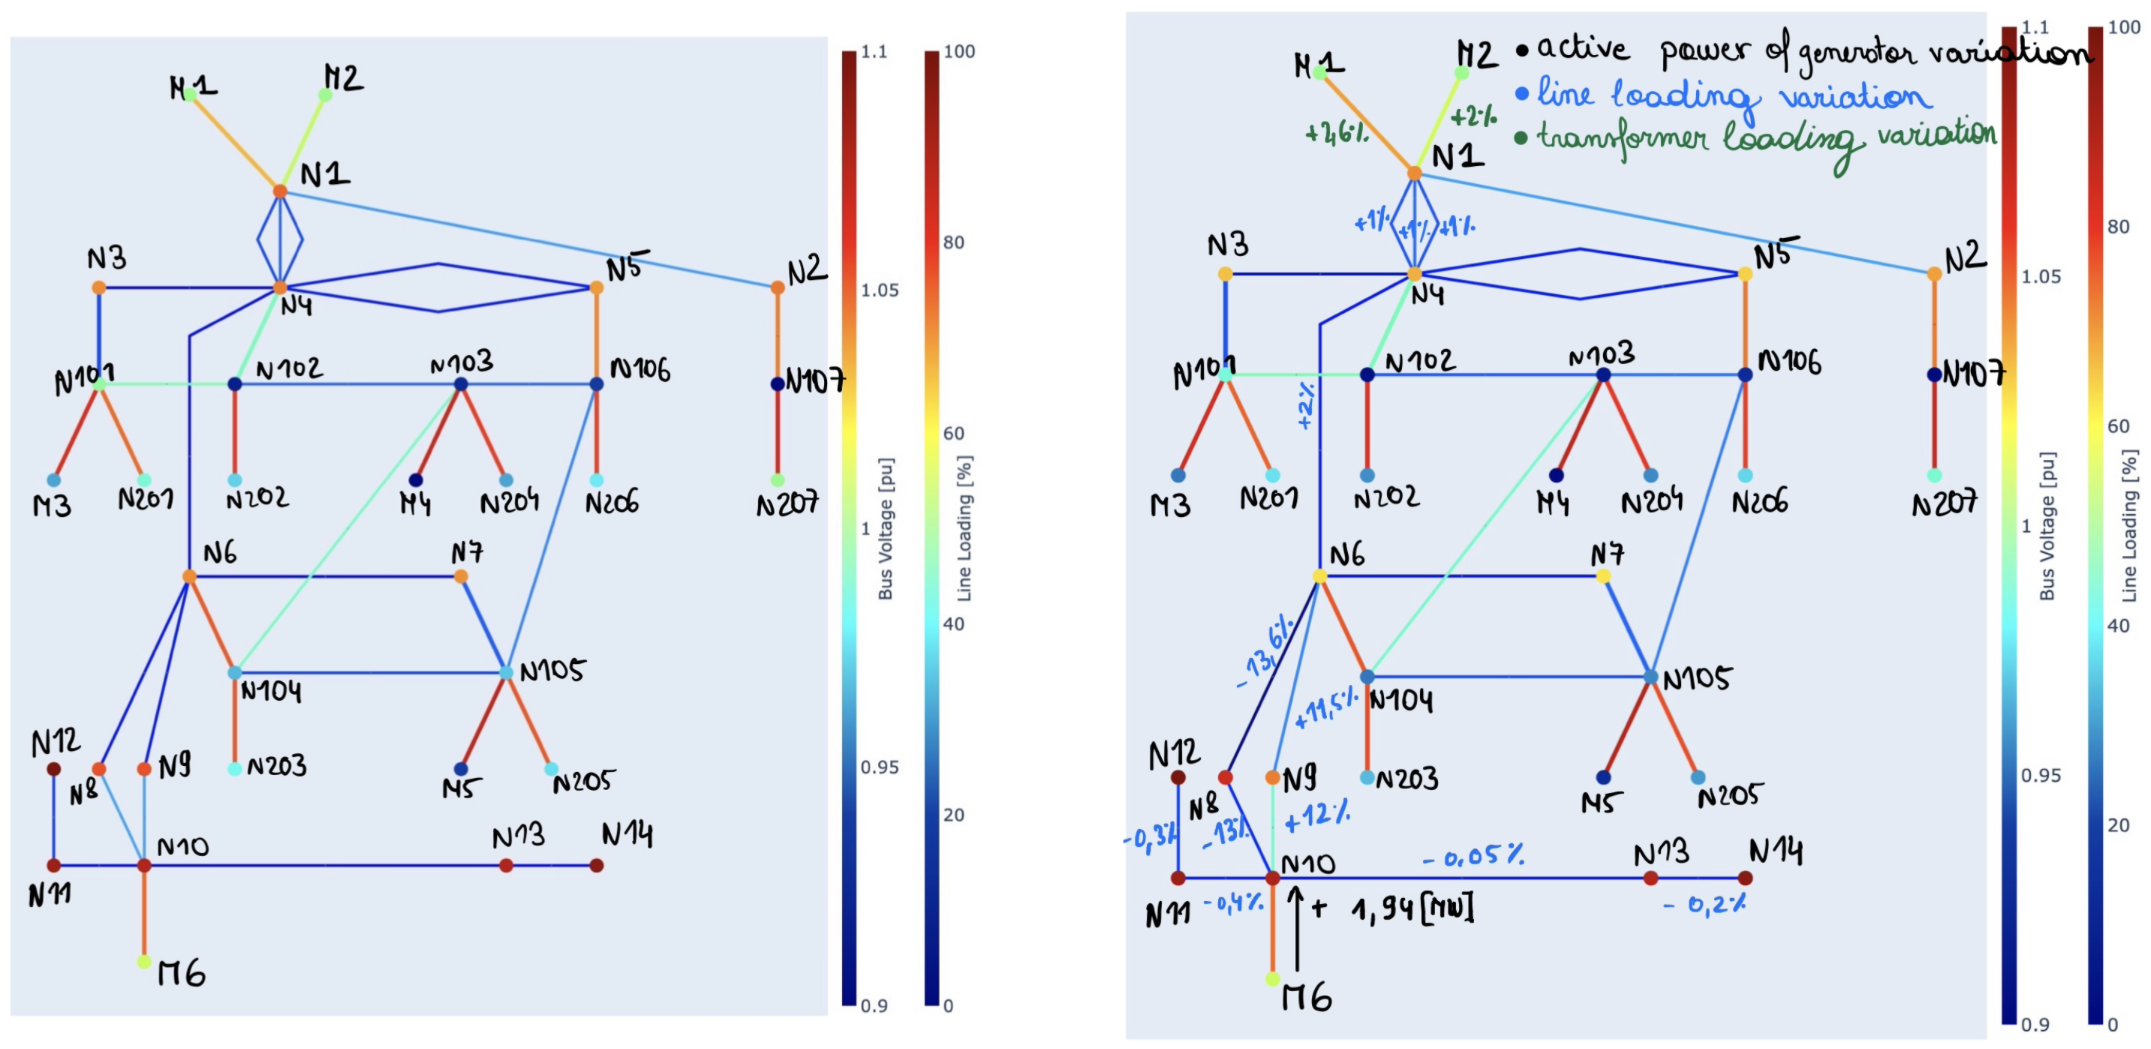 M1
M2
N1
N3
N4
N5
N2
N101
N102
N103
N106
N107
M3
N201
N202
M4
N204
N206
N207
N6
N7
N104
N105
N12
N8
N9
N203
M5
N205
N10
N13
N14
N11
M6
1.1
1.05
1
0.95
0.9
Bus Voltage [pu]
100
80
60
40
20
0
Line Loading [%]
• active power of generator variation
• line loading variation
• transformer loading variation
M1
M2
+2,6%
+2%
N1
+1%
+1%
+1%
N3
N4
N5
N2
N101
N102
N103
N106
N107
+2%
M3
N201
N202
M4
N204
N206
N207
N6
N7
-13,6%
+11,5%
N104
N105
N12
N8
N9
N203
M5
N205
-0,3%
-13%
+12%
N10
-0,05%
N13
N14
N11
-0,4%
+ 1,94 [MW]
-0,2%
M6
1.1
1.05
1
0.95
0.9
Bus Voltage [pu]
100
80
60
40
20
0
Line Loading [%]